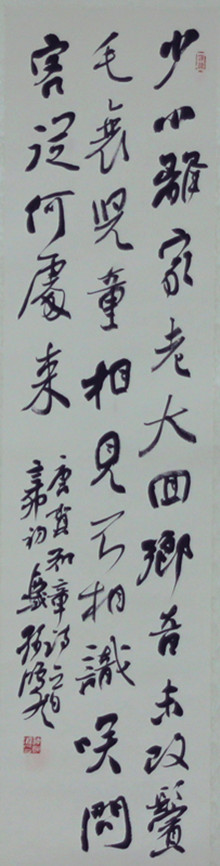 少小離家老大回鄉音未改鬢
毛衰兒童相見不相識咲問
客從何處來
唐賀知章詩